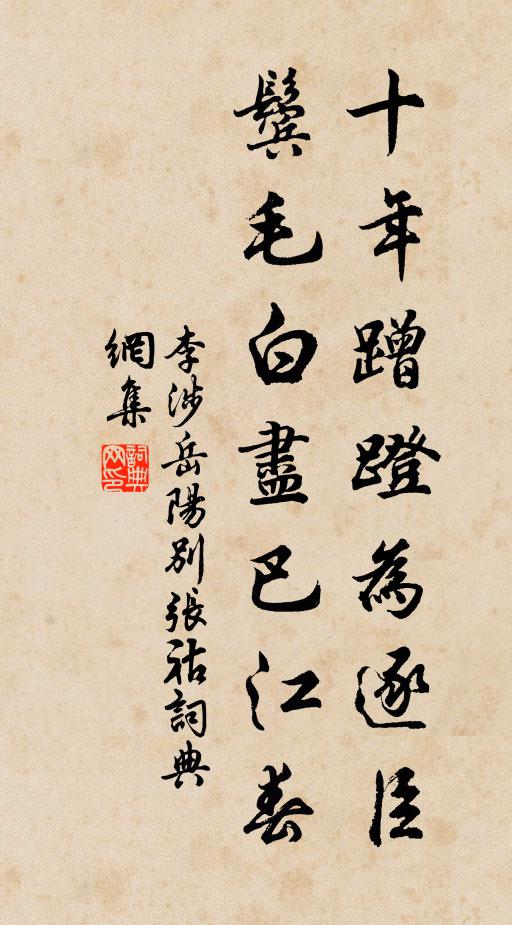 十年蹭蹬為逐臣
鬢毛白盡巴江春
李涉岳陽別張祜詞典
網集
詞典
网印